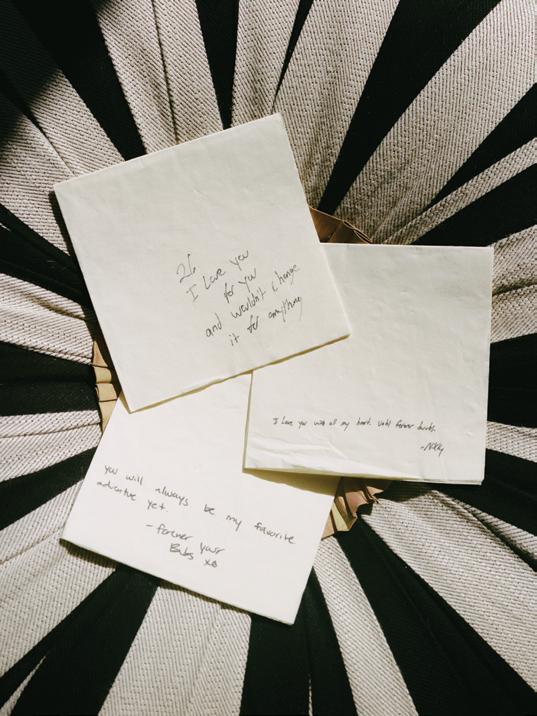 26
I Love you
for you
and wouldn't change
it for anything
I love you with all my heart. Until forever
-Nikky
you will always be my favorite
adventure yet.
-forever your
Babs xo